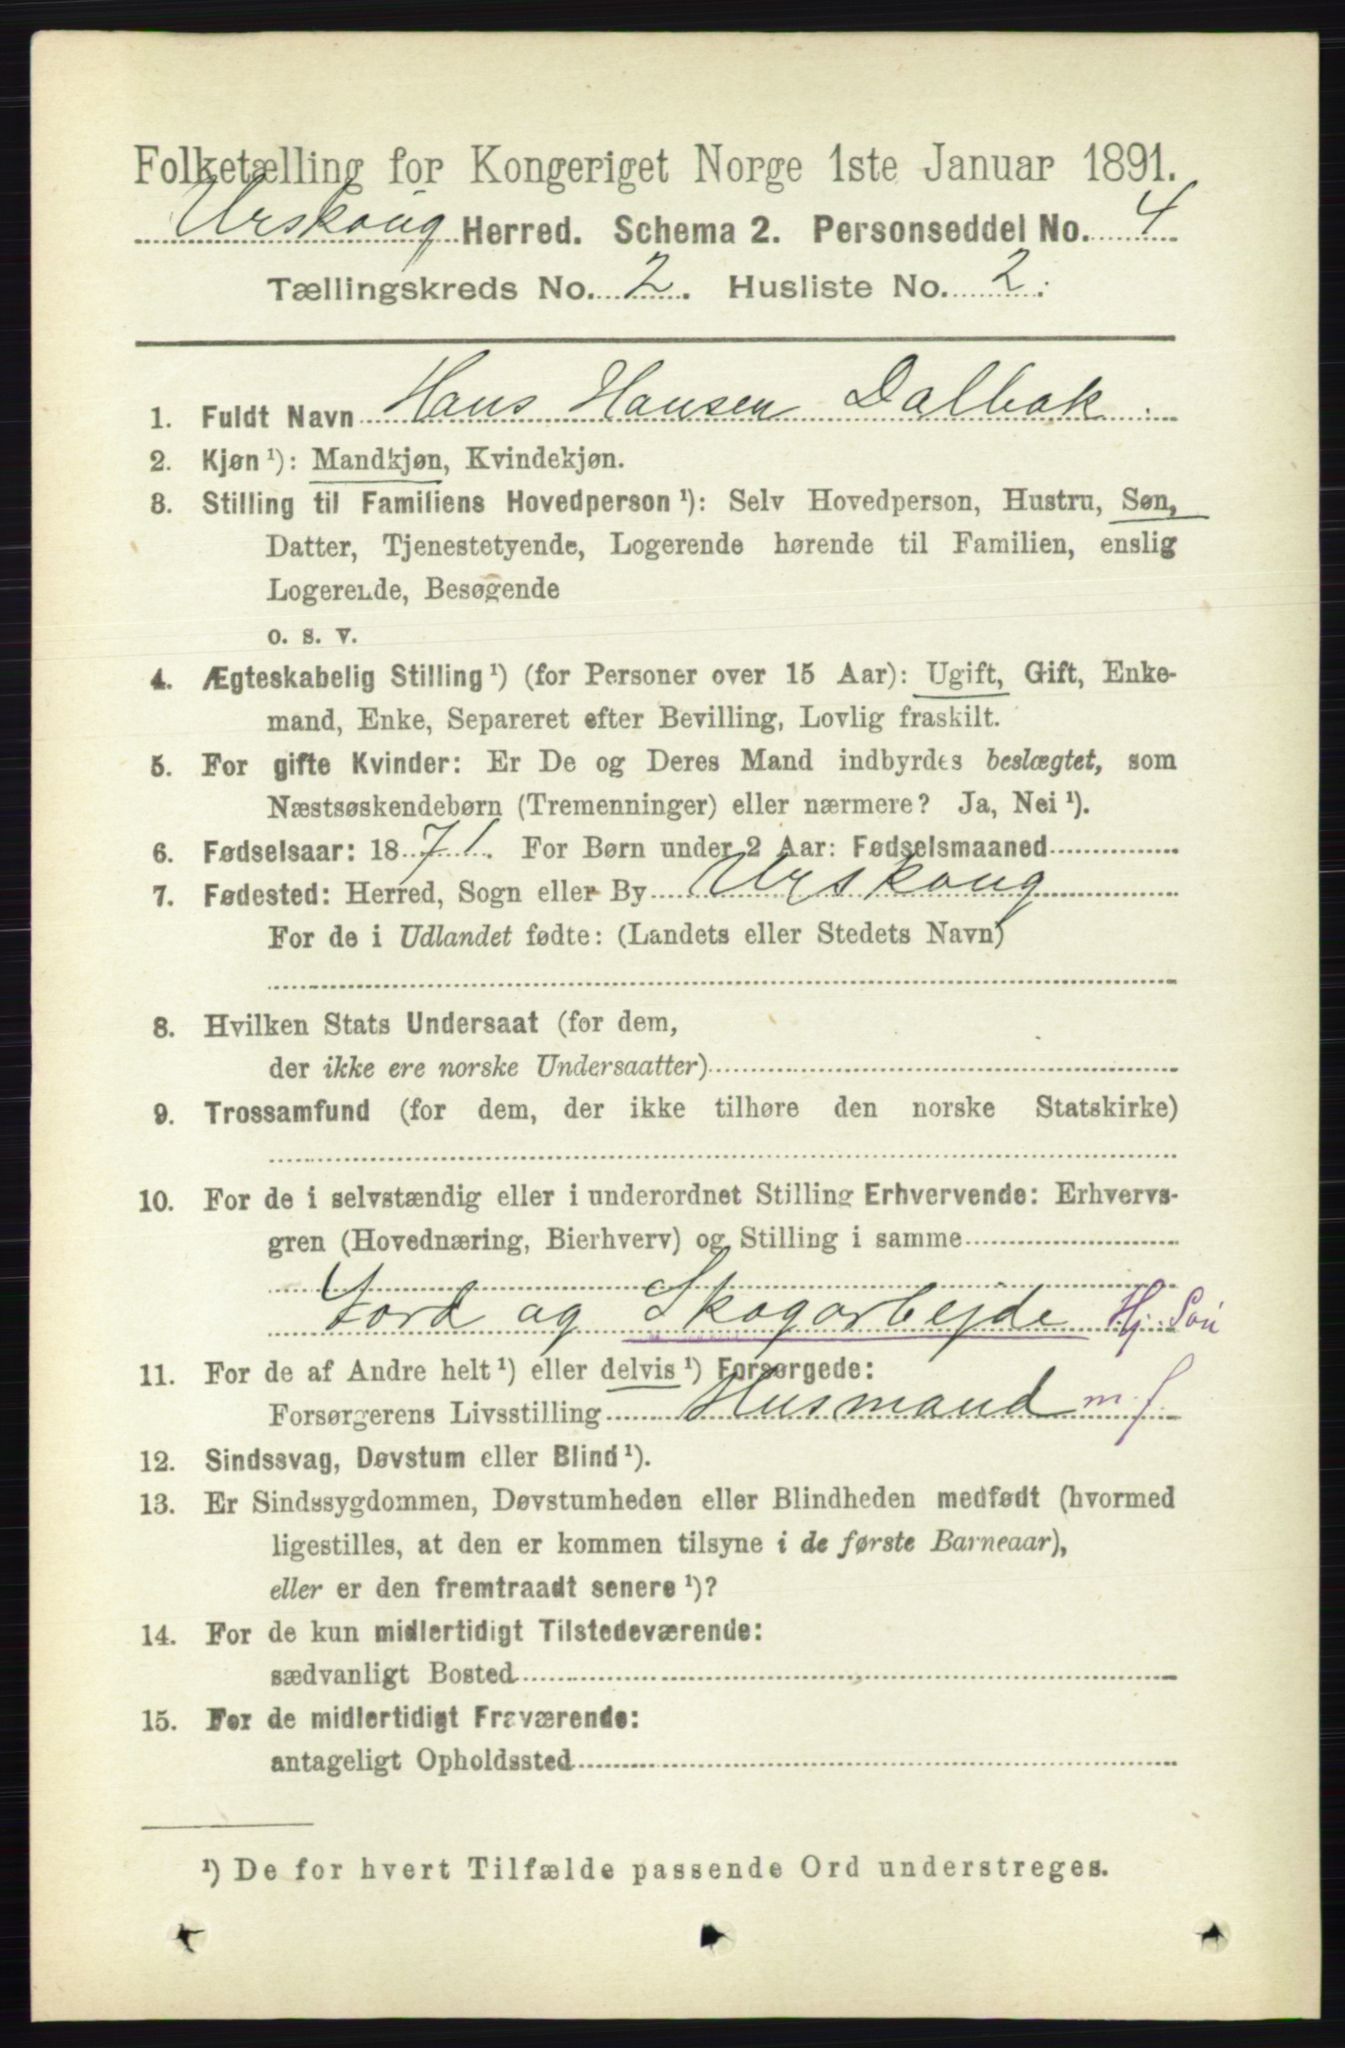 Folketælling for Kongeriget Norge 1ste Januar 1891.
Urskoug Herred. Schema 2. Personseddel No. 4
Tællingskreds No. 2. Husliste No. 2.
1. Fuldt Navn Hans Hansen Dalbak.
2. Kjøn ¹): Mandkjøn, Kvindekjøn.
3. Stilling til Familiens Hovedperson ¹): Selv Hovedperson, Hustru, Søn,
Datter, Tjenestetyende, Logerende hørende til Familien, enslig
Logerende, Besøgende
o. s. v.
4. Ægteskabelig Stilling ¹) (for Personer over 15 Aar): Ugift, Gift, Enke-
mand, Enke, Separeret efter Bevilling, Lovlig fraskilt.
5. For gifte Kvinder: Er De og Deres Mand indbyrdes beslægtet, som
Næstsøskendebørn (Tremenninger) eller nærmere? Ja, Nei ¹).
6. Fødselsaar: 1871. For Børn under 2 Aar: Fødselsmaaned
7. Fødested: Herred, Sogn eller By Urskoug
For de i Udlandet fødte: (Landets eller Stedets Navn)
8. Hvilken Stats Undersaat (for dem,
der ikke ere norske Undersaatter)
9. Trossamfund (for dem, der ikke tilhøre den norske Statskirke)
10. For de i selvstændig eller i underordnet Stilling Erhvervende: Erhvervs-
gren (Hovednæring, Bierhverv) og Stilling i samme
Jord og Skogarbejde Hj. Søn
11. For de af Andre helt ¹) eller delvis ¹) Forsørgede:
Forsørgerens Livsstilling Husmand m. J.
12. Sindssvag, Døvstum eller Blind ¹).
13. Er Sindssygdommen, Døvstumheden eller Blindheden medfødt (hvormed
ligestilles, at den er kommen tilsyne i de første Barneaar),
eller er den fremtraadt senere ¹)?
14. For de kun midlertidigt Tilstedeværende:
sædvanligt Bosted
15. For de midlertidigt Fraværende:
antageligt Opholdssted
¹) De for hvert Tilfælde passende Ord understreges.